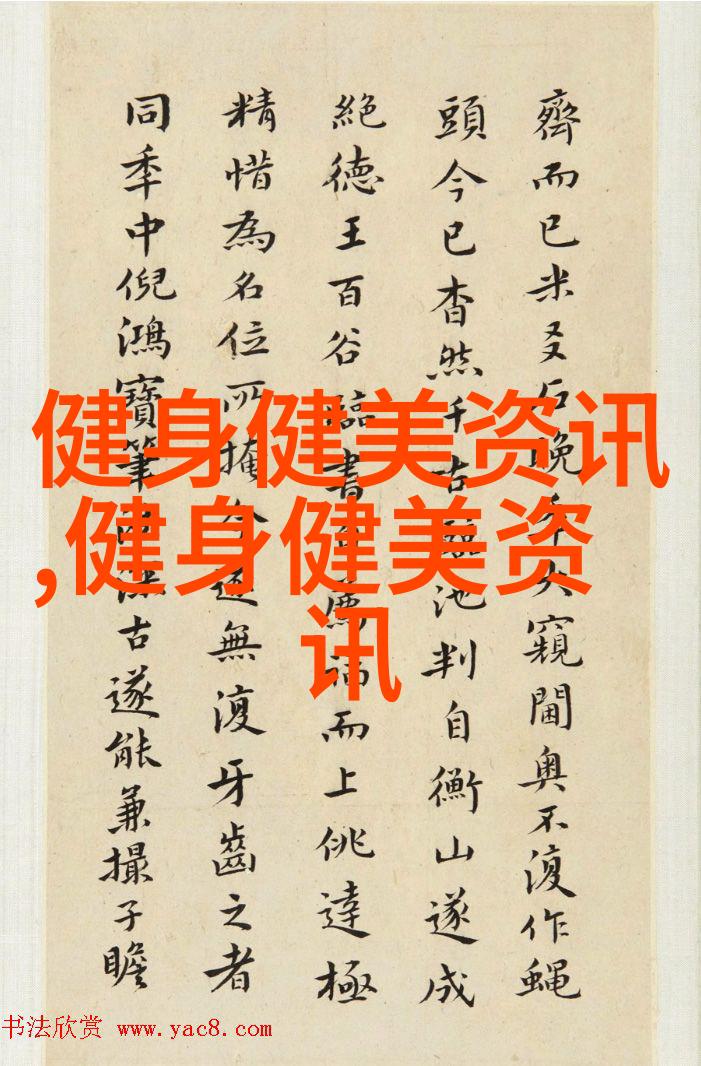 齊而已米友石晚年大窺閫奥不復作蝇
頭今已杳然千古臨池判自衡山遂成
絶德王百谷臨書而上佻達極
精惜為名位所掩今遂無復牙齒之者
同年中倪鴻寶筆法古遂能兼撮子瞻
健身健美资讯
,健身健美资
讯
书法欣赏 www.yac8.com